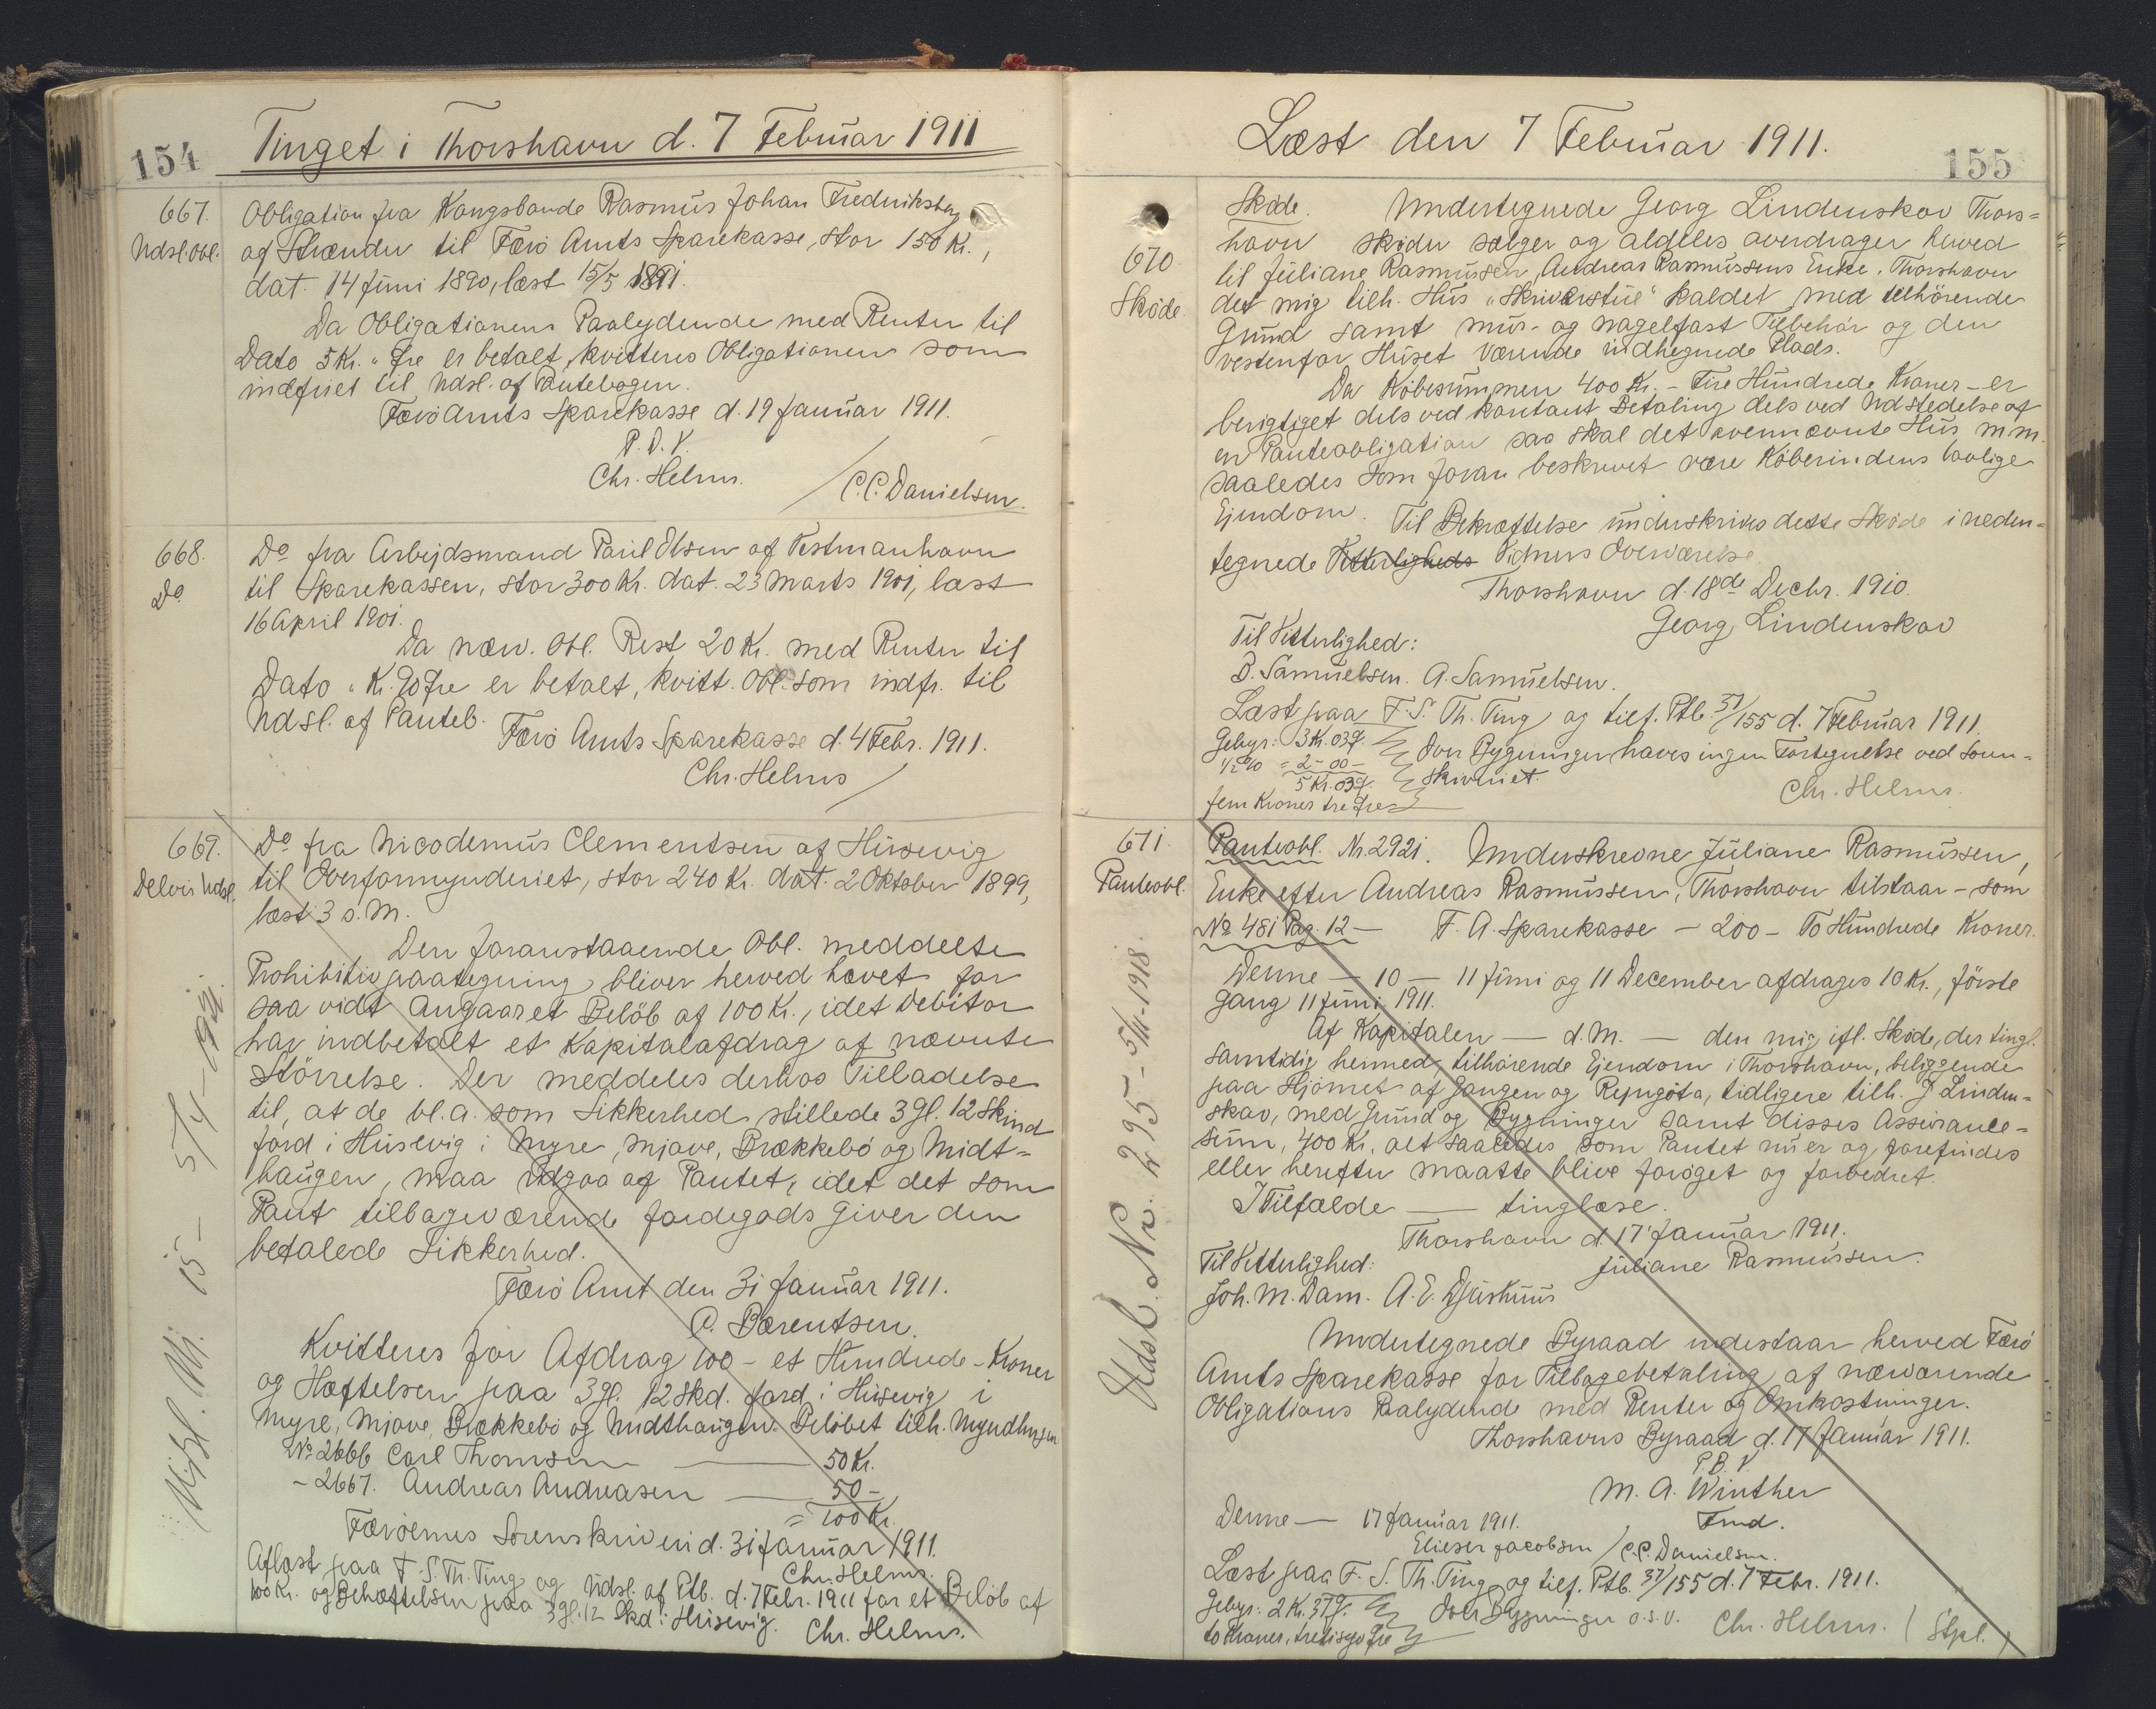 154
Tinget i Thorshavn d. 7 Februar 1911
667.
Udsl. Obl.
Obligation fra Kongsbonde Rasmus Johan Frederiksberg
af Strænder til Færø Amts Sparekasse, stor 150 Kr.,
dat. 14 Juni 1890, læst 15/5 1891.
Da Obligationens Paalydende med Renter til
Dato 5 Kr. " Øre er betalt, kvitteres Obligationen som
indfriet til Udsl. af Pantebogen.
Færø Amts Sparekasse d. 19 Januar 1911.
P. D. V.
Chr. Helms. / C.C. Danielsen.
668.
Do
Do fra Arbejdsmand Paul Olsen af Vestmanhavn
til Sparekassen, stor 300 Kr. dat. 23 Marts 1901, læst
16 April 1901.
Da næv. Obl. Rest 20 Kr. med Renter til
Dato " Kr. 90 Øre er betalt, kvitt. Obl. som indfr. til
Udsl. af Panteb.
Færø Amts Sparekasse d. 4 Febr. 1911.
Chr. Helms /
669.
Delvis Udsl.
Do fra Nicodemus Clementsen af Husevig
til Overformynderiet, stor 240 Kr. dat. 2 Oktober 1899,
læst 3 s. M.
Den foranstaaende Obl. meddelte
Prohibitivpaategning bliver herved hævet for
saa vidt angaar et Beløb af 100 Kr., idet Debitor
har indbetalt et Kapitalafdrag af nævnte
Størrelse. Der meddeles derhos Tilladelse
til, at de bl. a. som Sikkerhed stillede 3 Gl. 12 Skind
Jord i Husevig i Myre, Mjave, Brækkebø og Midt=
haugen, maa udgaa af Pantet, idet det som
Pant tilbageværende Jordegods giver den
betalede Sikkerhed.
Færø Amt den 31 Januar 1911.
C. Bærentsen.
Kvitteres for Afdrag 100 - et Hundrede - Kroner
og Hæftelsen paa 3 Gl. 12 Skd. Jord i Husevig i
Myre, Mjave, Brækkebø og Midthaugen. Beløbet tilh. Myndlingen
No 2666 Carl Thomsen — 50 Kr.
- 2667. Andreas Andreasen — 50 -
= 100 Kr.
Færøernes Sorenskriveri d. 31 Januar 1911.
Chr. Helms.
Aflæst paa F. S. Th. Ting og Udsl. af Ptb. d. 7 Febr. 1911 for et Beløb af
100 Kr. og Behæftelsen paa 3 Gl. 12 Skd. i Husevig. Chr. Helms.
155
Læst den 7 Februar 1911.
670
Skøde
Skøde. Undertegnede Georg Lindenskov Thors=
havn skøder sælger og aldeles overdrager herved
til Juliane Rasmussen, Andreas Rasmussens Enke, Thorshavn
det mig tilh. Hus "Skriverstue" kaldet med tilhørende
Grund samt mur- og nagelfast Tilbehør og den
vestenfor Huset værende indhegnede Plads.
Da Købesummen 400 Kr. - Fire Hundrede Kroner - er
berigtiget dels ved kontant Betaling dels ved Udstedelse af
en Panteobligation saa skal det ovennævnte Hus m. m.
saaledes som foran beskrevet være Køberindens lovlige
Ejendom.
Til Bekræftelse underskrives dette Skøde i neden=
tegnede Vitterligheds Vidners Overværelse
Thorshavn d. 18de Decbr. 1910.
Georg Lindenskov
Til Vitterlighed:
D. Samuelsen. A. Samuelsen.
Læst paa F. S. Th. Ting og tilf. Ptb. 37/155 d. 7 Februar 1911.
Gebyr: 3 Kr. 03 Ø.
1/2 % = 2 - 00 -
5 Kr. 03 Ø.
fem Kroner tre Øre
Over Bygninger haves ingen Fortegnelse ved Soren=
skriveriet.
Chr. Helms.
671.
Panteobl.
Udsl. Nr. 295 - 5/4 - 1918.
Panteobl. Nr. 2921. Underskrevne Juliane Rasmussen,
Enke efter Andreas Rasmussen, Thorshavn tilstaar - som
No 481 Pag. 12 — F. A. Sparekasse - 200 - To Hundrede Kroner.
Denne — 10 — 11 Juni og 11 December afdrages 10 Kr., første
Gang 11 Juni 1911.
Af Kapitalen — d. M. — den mig ifl. Skøde, der tingl.
samtidig hermed, tilhørende Ejendom i Thorshavn, beliggende
paa Hjørnet af Gongen og Rejngøta, tidligere tilh. G Linden=
skov, med Grund og Bygninger samt disses Assurance=
sum, 400 Kr. alt saaledes som Pantet nu er og forefindes
eller herefter maatte blive forøget og forbedret.
I Tilfælde — tinglæse.
Thorshavn d. 17 Januar 1911.
Juliane Rasmussen.
Til Vitterlighed:
Joh. M. Dam. A. E. Djurhuus
Undertegnede Byraad indestaar herved Færø
Amts Sparekasse for Tilbagebetaling af nærværende
Obligations Paalydende med Renter og Omkostninger.
Thorshavns Byraad d. 17 Januar 1911.
P. B. V.
M. A. Winther
Fmd.
Denne — 17 Januar 1911.
Elieser Jacobsen / C.C. Danielsen.
Læst paa F. S. Th. Ting og tilf. Ptb. 37/155 d. 7 Febr. 1911.
Gebyr: 2 Kr. 37 Ø.
to Kroner, tretisyv Øre
Over Bygninger o. s. v. Chr. Helms. ( Stpl. )